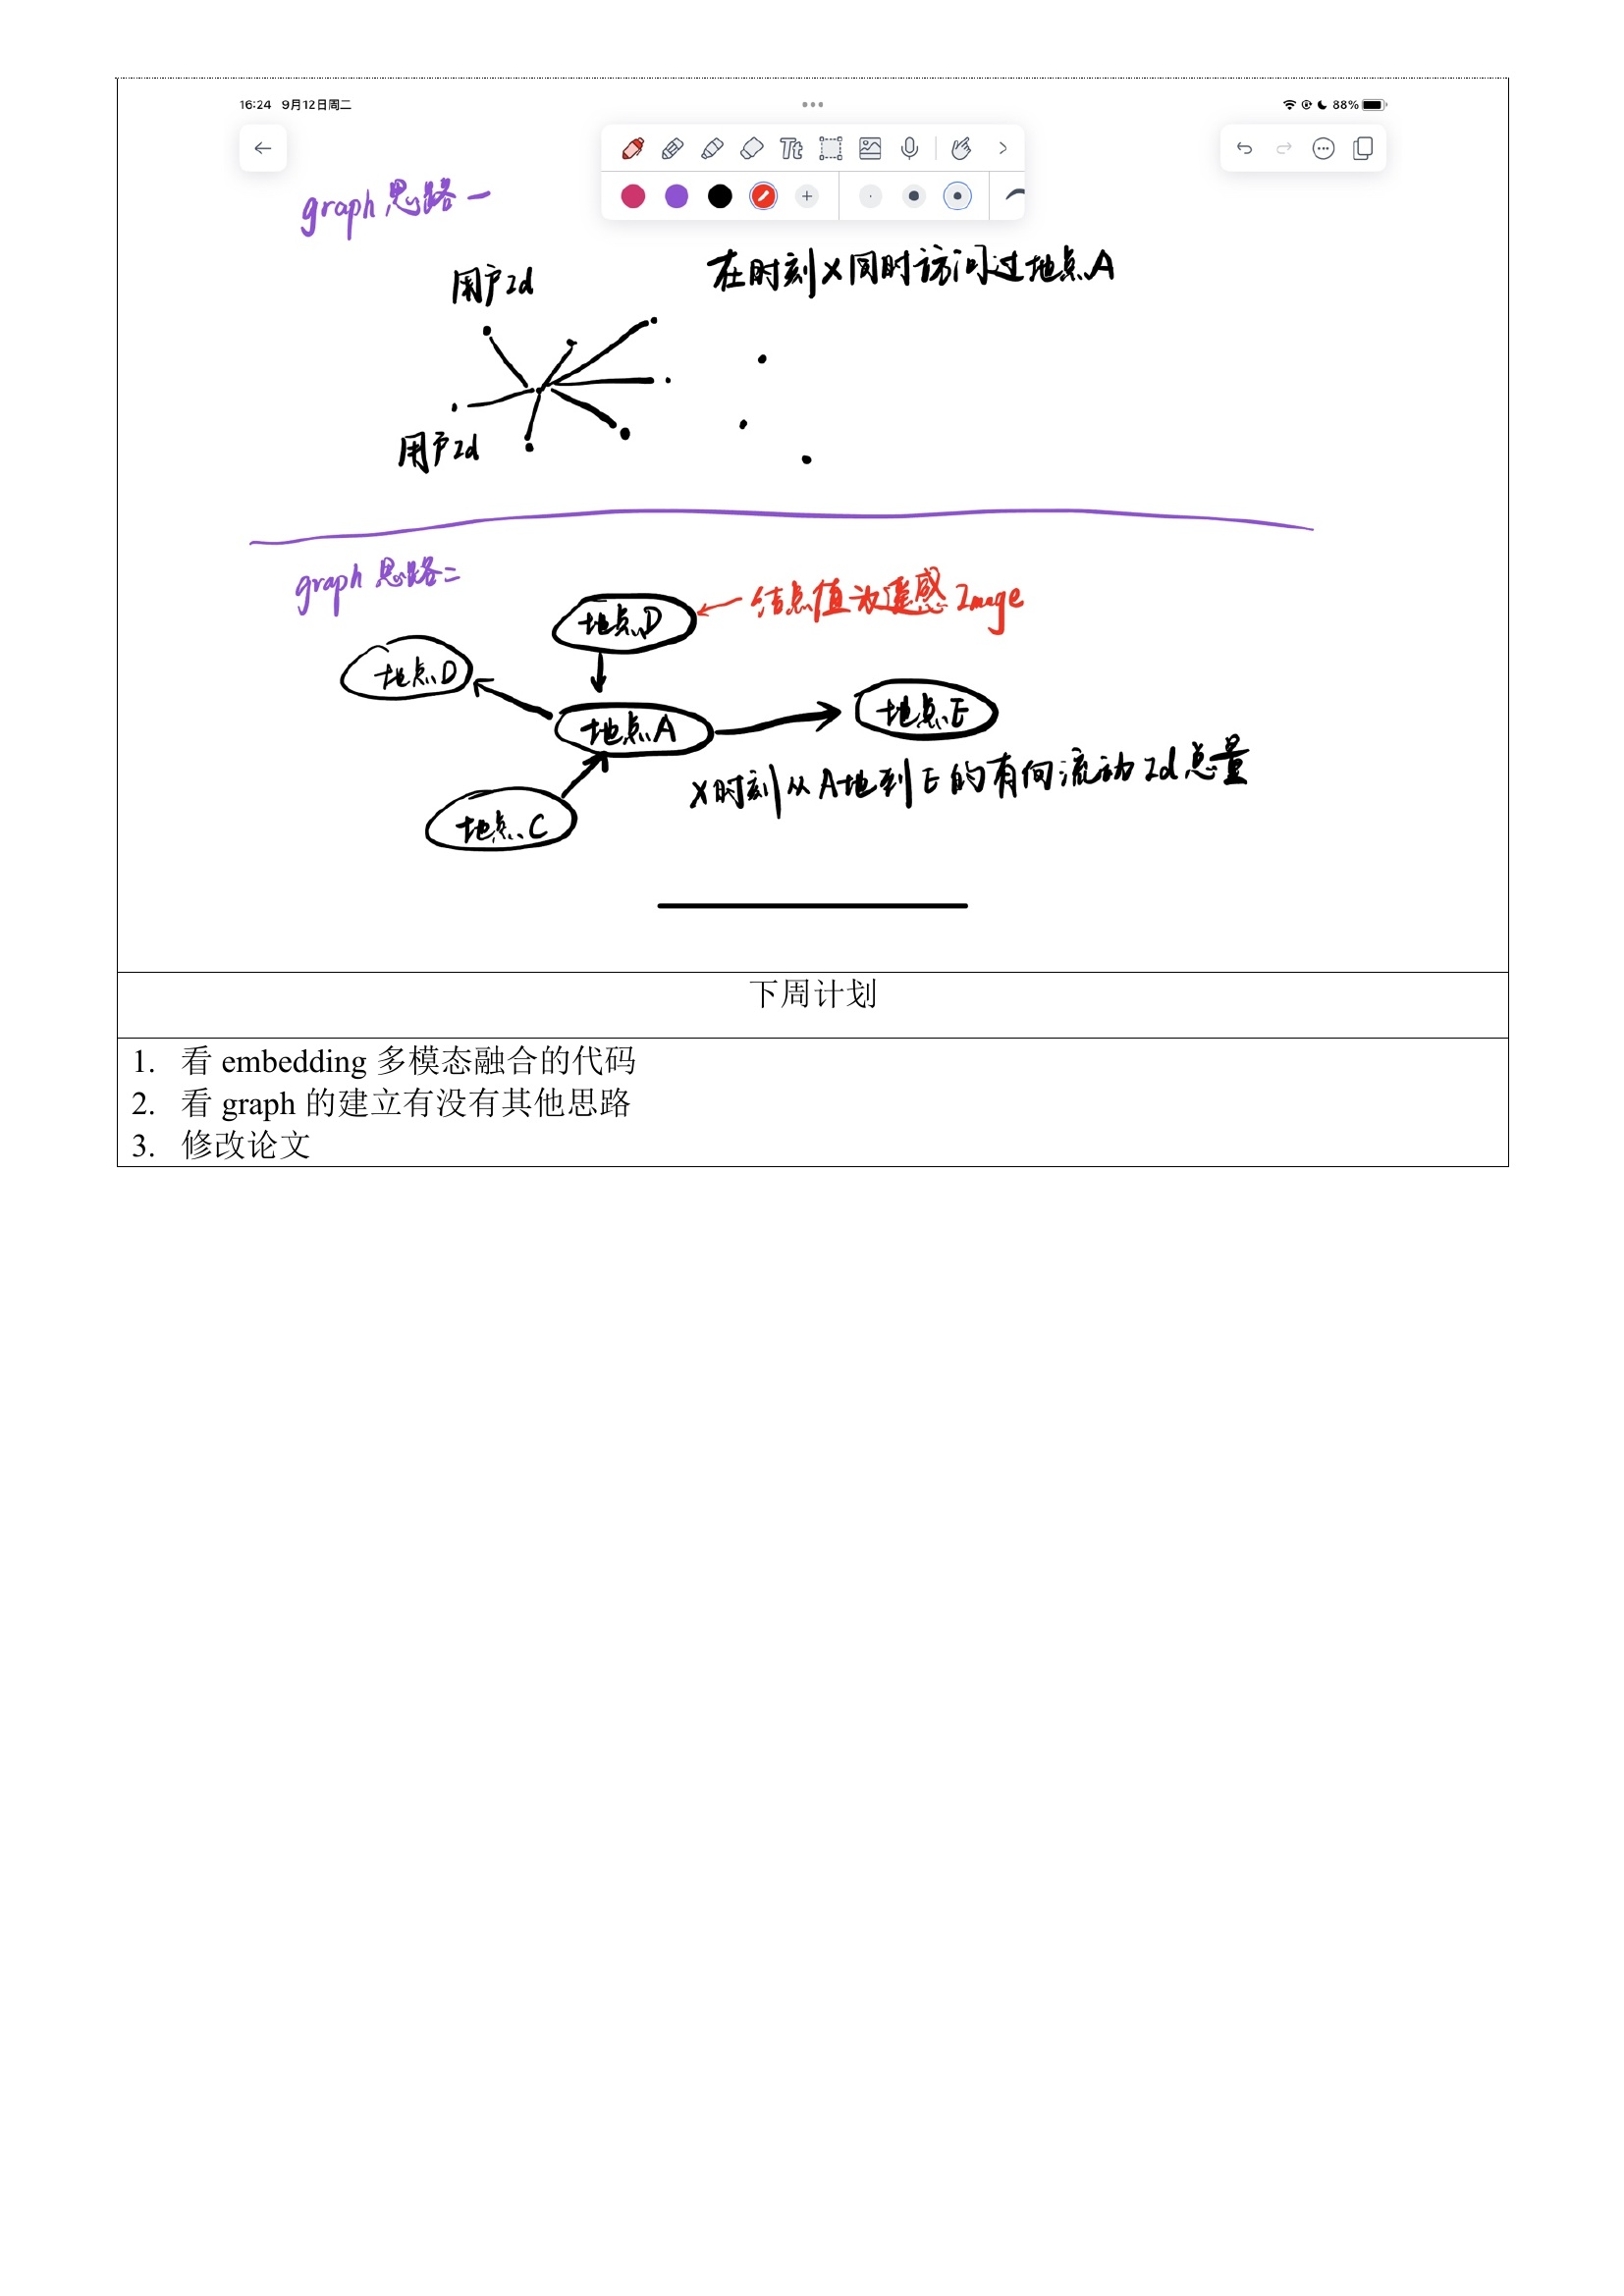 16:24 9月12日周二
88%
Tt
graph思路一
用户Id
在时刻X同时访问过地点A
用户Id
graph思路二
结点值为遥感Image
地点D
地点D
地点A
地点E
X时刻从A地到E的有向流动Id总量
地点C
下周计划
1. 看 embedding 多模态融合的代码
2. 看 graph 的建立有没有其他思路
3. 修改论文